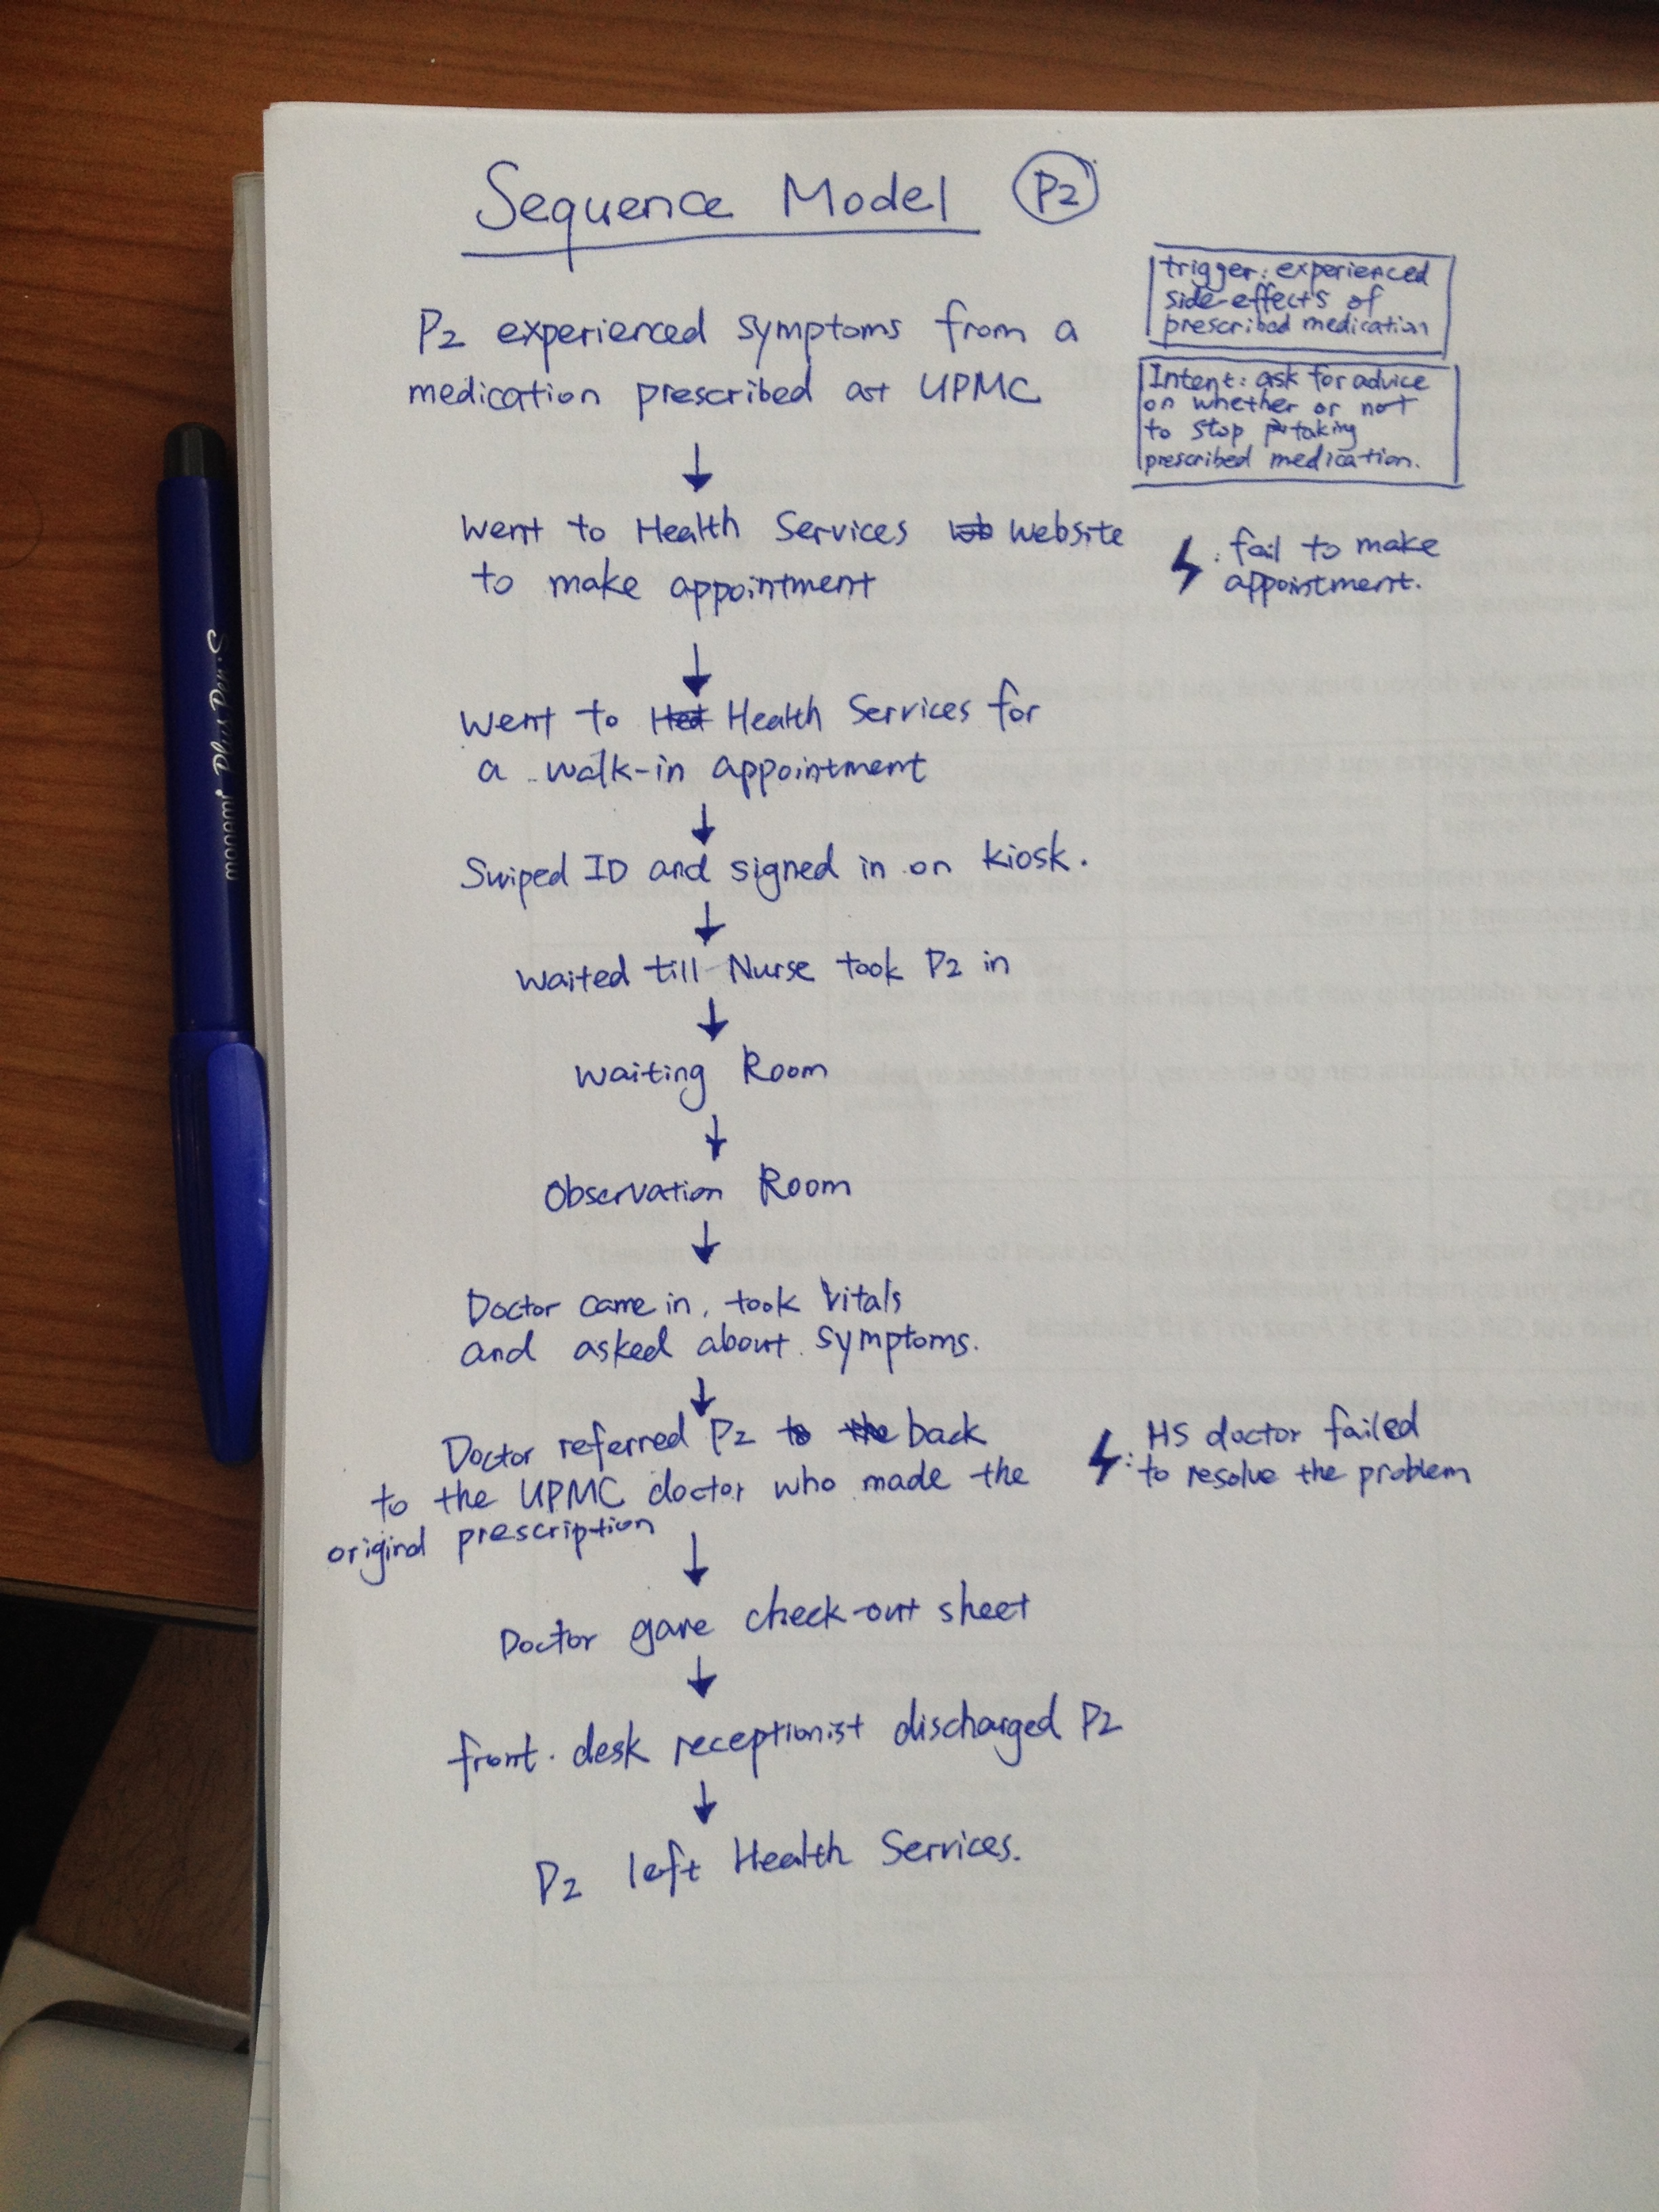 Sequence Model P2
trigger: experienced
side-effects of
prescribed medication
Intent: ask for advice
on whether or not
to stop taking
prescribed medication.
P2 experienced symptoms from a
medication prescribed at UPMC
↓
Went to Health Services website
to make appointment
: fail to make
appointment.
↓
Went to Health Services for
a walk-in appointment
↓
Swiped ID and signed in on kiosk.
↓
Waited till Nurse took P2 in
↓
Waiting Room
↓
Observation Room
↓
Doctor came in, took vitals
and asked about symptoms.
↓
Doctor referred P2 back
to the UPMC doctor who made the
original prescription
: HS doctor failed
to resolve the problem
↓
Doctor gave check-out sheet
↓
front-desk receptionist discharged P2
↓
P2 left Health Services.
monami Plus Pen-S